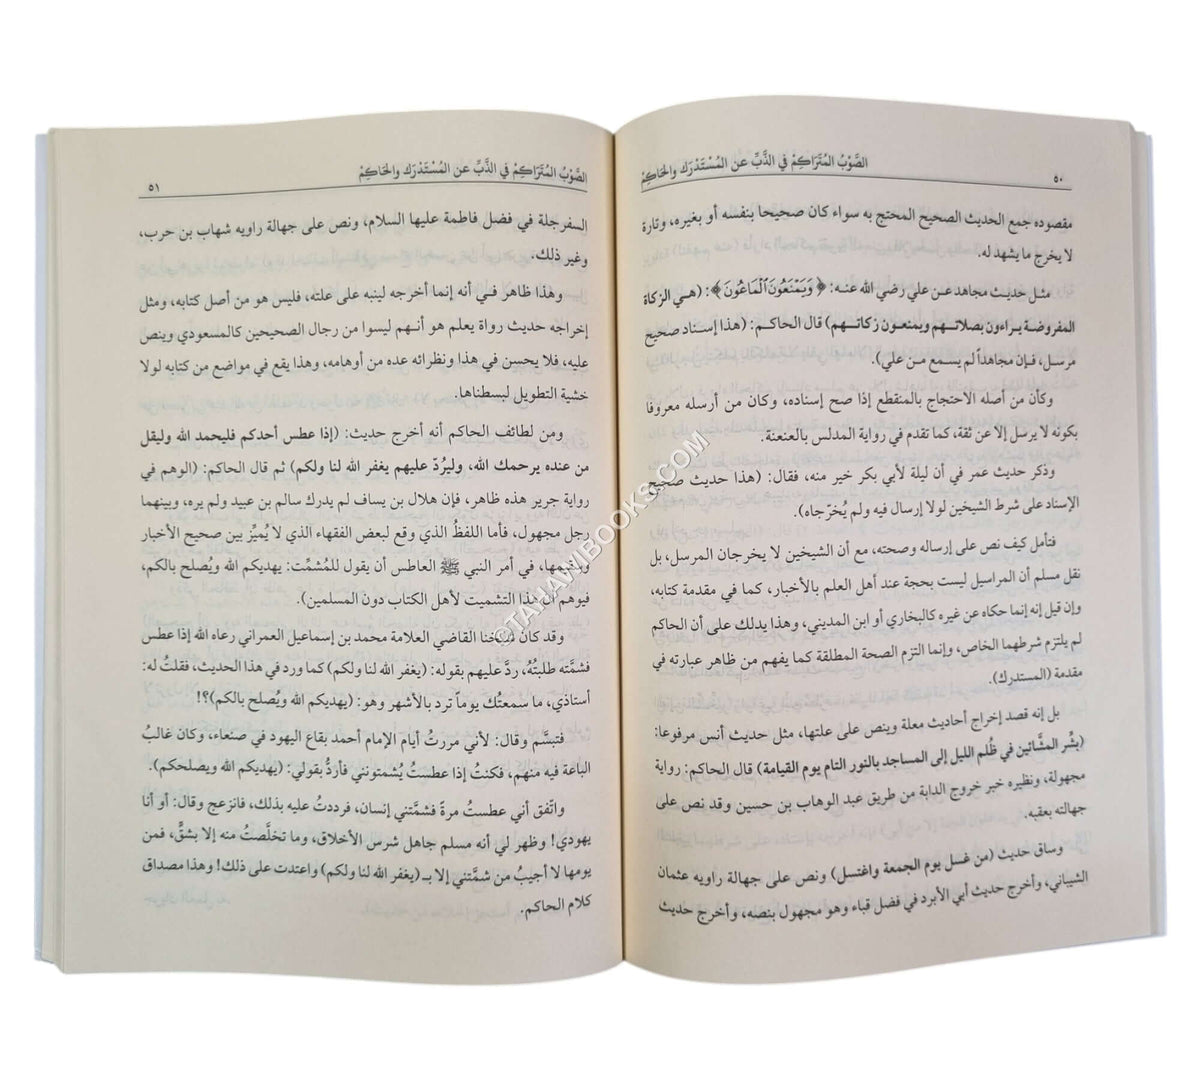 ٥٠
الصَّوْبُ المُتَرَاكِمْ في الذَّبِّ عن المُسْتَدْرَك والحَاكِمْ
مقصوده جمع الحديث الصحيح المحتج به سواء كان صحيحا بنفسه أو بغيره، وتارة
لا يخرج ما يشهد له.
مثل حديث مجاهد عن علي رضي الله عنه: ﴿وَيَمْنَعُونَ ٱلْمَاعُونَ﴾: (هي الزكاة
المفروضة يراءون بصلاتهم ويمنعون زكاتهم) قال الحاكم: (هذا إسناد صحيح
مرسل، فإن مجاهداً لم يسمع من علي).
وكأن من أصله الاحتجاج بالمنقطع إذا صح إسناده، وكان من أرسله معروفا
بكونه لا يرسل إلا عن ثقة، كما تقدم في رواية المدلس بالعنعنة.
وذكر حديث عمر في أن ليلة لأبي بكر خير منه، فقال: (هذا حديث صحيح
الإسناد على شرط الشيخين لولا إرسال فيه ولم يُخرّجاه).
فتأمل كيف نص على إرساله وصحته، مع أن الشيخين لا يخرجان المرسل، بل
نقل مسلم أن المراسيل ليست بحجة عند أهل العلم بالأخبار، كما في مقدمة كتابه،
وإن قيل إنه إنما حكاه عن غيره كالبخاري أو ابن المديني، وهذا يدلك على أن الحاكم
لم يلتزم شرطهما الخاص، وإنما التزم الصحة المطلقة كما يفهم من ظاهر عبارته في
مقدمة (المستدرك).
بل إنه قصد إخراج أحاديث معلة ونص على علتها، مثل حديث أنس مرفوعا:
(بشّر المشّائين في ظُلم الليل إلى المساجد بالنور التام يوم القيامة) قال الحاكم: رواية
مجهولة، ونظيره خبر خروج الدابة من طريق عبد الوهاب بن حسين وقد نص على
جهالته بعقبه.
وساق حديث (من غسل يوم الجمعة واغتسل) ونص على جهالة راويه عثمان
الشيباني، وأخرج حديث أبي الأبرد في فضل قباء وهو مجهول بنصه، وأخرج حديث
الصَّوْبُ المُتَرَاكِمْ في الذَّبِّ عن المُسْتَدْرَك والحَاكِمْ
٥١
السفرجلة في فضل فاطمة عليها السلام، ونص على جهالة راويه شهاب بن حرب،
وغير ذلك.
وهذا ظاهر في أنه إنما أخرجه لينبه على علته، فليس هو من أصل كتابه، ومثل
إخراجه حديث رواة يعلم هو أنهم ليسوا من رجال الصحيحين كالمسعودي وينص
عليه، فلا يحسبن في هذا ونظرائه عده من أوهامه، وهذا يقع في مواضع من كتابه لولا
خشية التطويل لبسطناها.
ومن لطائف الحاكم أنه أخرج حديث: (إذا عطس أحدكم فليحمد الله وليقل
من عنده يرحمك الله، وليرُدّ عليهم يغفر الله لنا ولكم) ثم قال الحاكم: (الوهم في
رواية جرير هذه ظاهر، فإن هلال بن يساف لم يدرك سالم بن عبيد ولم يره، وبينهما
رجل مجهول، فأما اللفظُ الذي وقع لبعض الفقهاء الذي لا يُميِّز بين صحيح الأخبار
وسقيمها، في أمر النبي ﷺ العاطس أن يقول للمُشمِّت: يهديكم الله ويُصلح بالكم،
فيوهم أن هذا التشميت لأهل الكتاب دون المسلمين).
وقد كان شيخنا القاضي العلامة محمد بن إسماعيل العمراني رعاه الله إذا عطس
فشمَّته طلبتُهُ، ردَّ عليهم بقوله: (يغفر الله لنا ولكم) كما ورد في هذا الحديث، فقلتُ له:
أستاذي، ما سمعتُك يوماً ترد بالأشهر وهو: (يهديكم الله ويُصلح بالكم)؟!
فتبسَّم وقال: لأني مررتُ أيام الإمام أحمد بقاع اليهود في صنعاء، وكان غالبُ
الباعة فيه منهم، فكنتُ إذا عطستُ يُشمتونني فأردُّ بقولي: (يهديكم الله ويصلحكم).
واتّفق أني عطستُ مرةً فشمَّتني إنسان، فرددتُ عليه بذلك، فانزعج وقال: أو أنا
يهودي! وظهر لي أنه مسلم جاهل شرس الأخلاق، وما تخلَّصتُ منه إلا بشقٍّ، فمن
يومها لا أجيبُ من شمَّتني إلا بـ (يغفر الله لنا ولكم) واعتدت على ذلك! وهذا مصداق
كلام الحاكم.
©TAHAWIBOOKS.COM